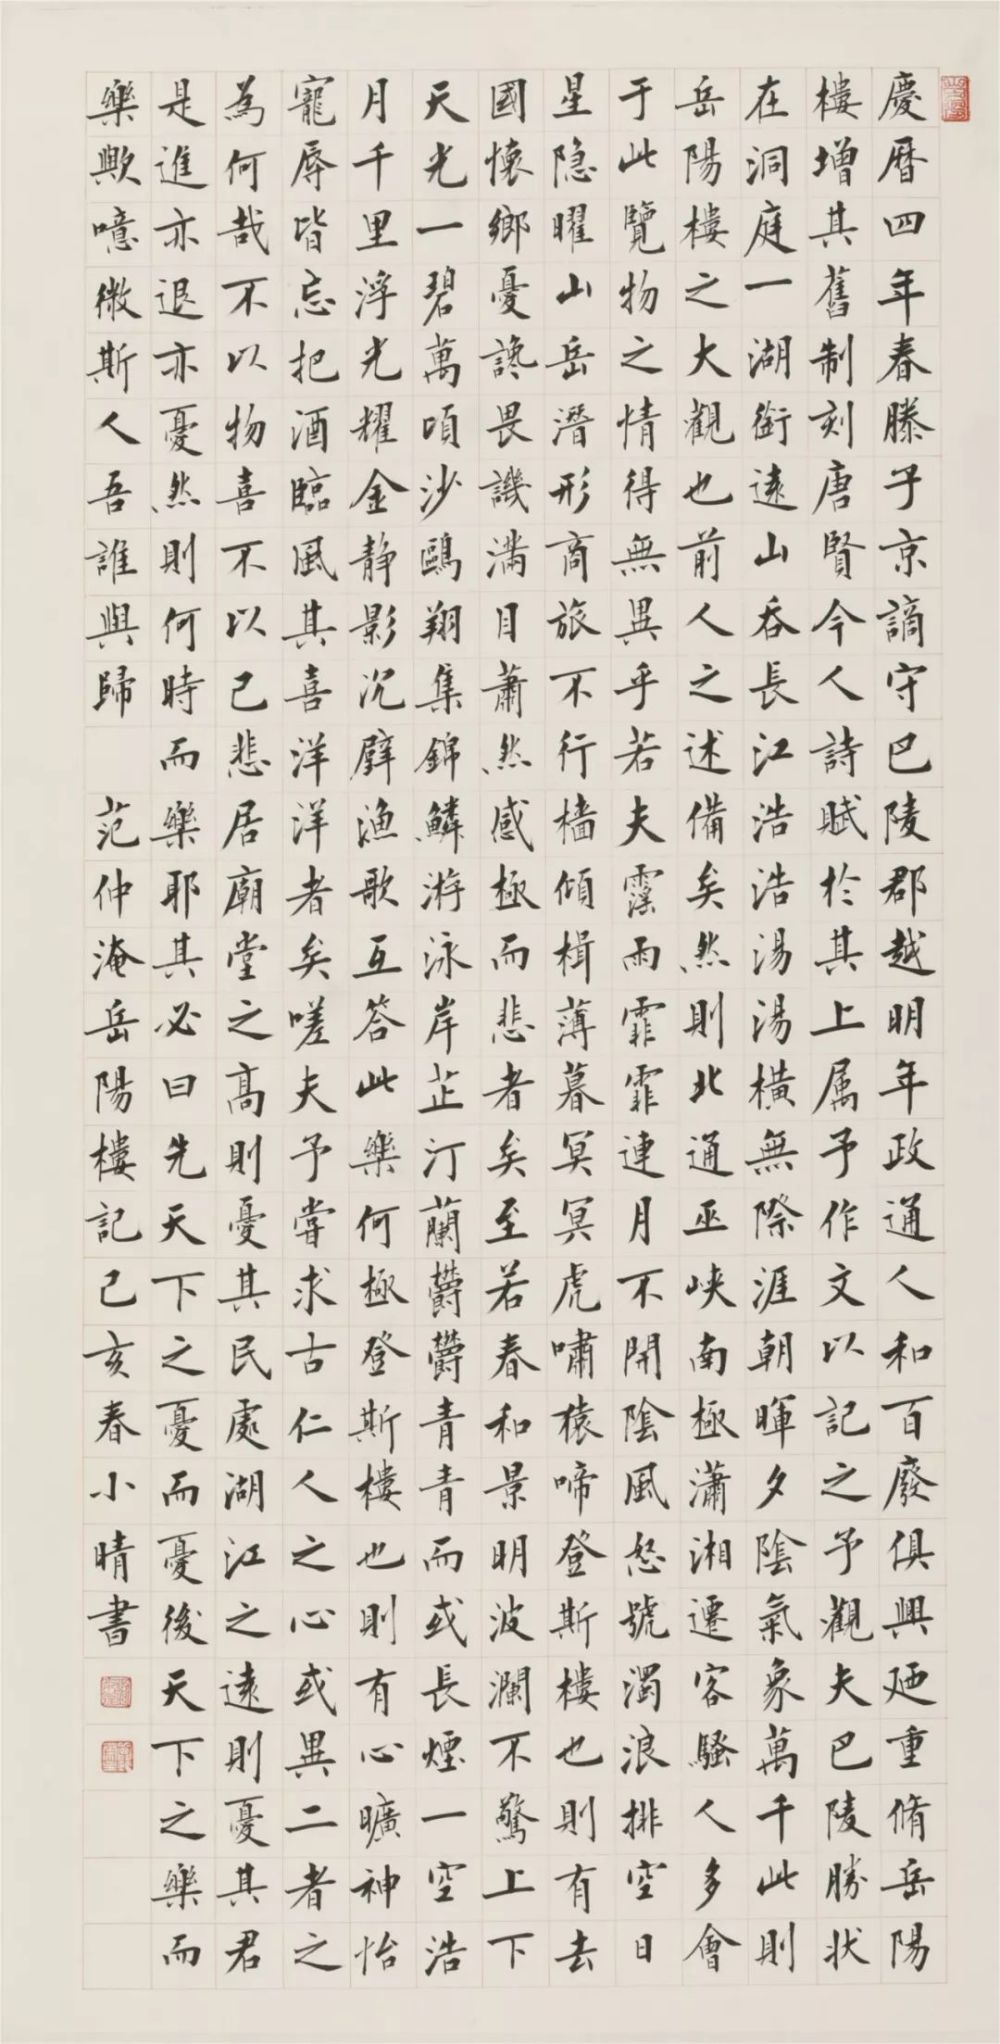 慶曆四年春滕子京謫守巴陵郡越明年政通人和百廢俱興廼重脩岳陽
樓增其舊制刻唐賢今人詩賦於其上属予作文以記之予觀夫巴陵勝狀
在洞庭一湖銜遠山吞長江浩浩湯湯橫無際涯朝暉夕陰氣象萬千此則
岳陽樓之大觀也前人之述備矣然則北通巫峽南極瀟湘遷客騷人多會
于此覽物之情得無異乎若夫霪雨霏霏連月不開陰風怒號濁浪排空日
星隐曜山岳潛形商旅不行檣傾楫薄暮冥冥虎嘯猿啼登斯樓也則有去
國懷鄉憂讒畏譏滿目蕭然感極而悲者矣至若春和景明波瀾不驚上下
天光一碧萬頃沙鷗翔集錦鱗游泳岸芷汀蘭欝欝青青而或長煙一空浩
月千里浮光耀金静影沉璧漁歌互答此樂何極登斯樓也則有心曠神怡
寵辱皆忘把酒臨風其喜洋洋者矣嗟夫予嘗求古仁人之心或異二者之
為何哉不以物喜不以己悲居廟堂之高則憂其民處湖江之遠則憂其君
是進亦退亦憂然則何時而樂耶其必曰先天下之憂而憂後天下之樂而
樂歟噫微斯人吾誰與歸 范仲淹岳陽樓記己亥春小晴書